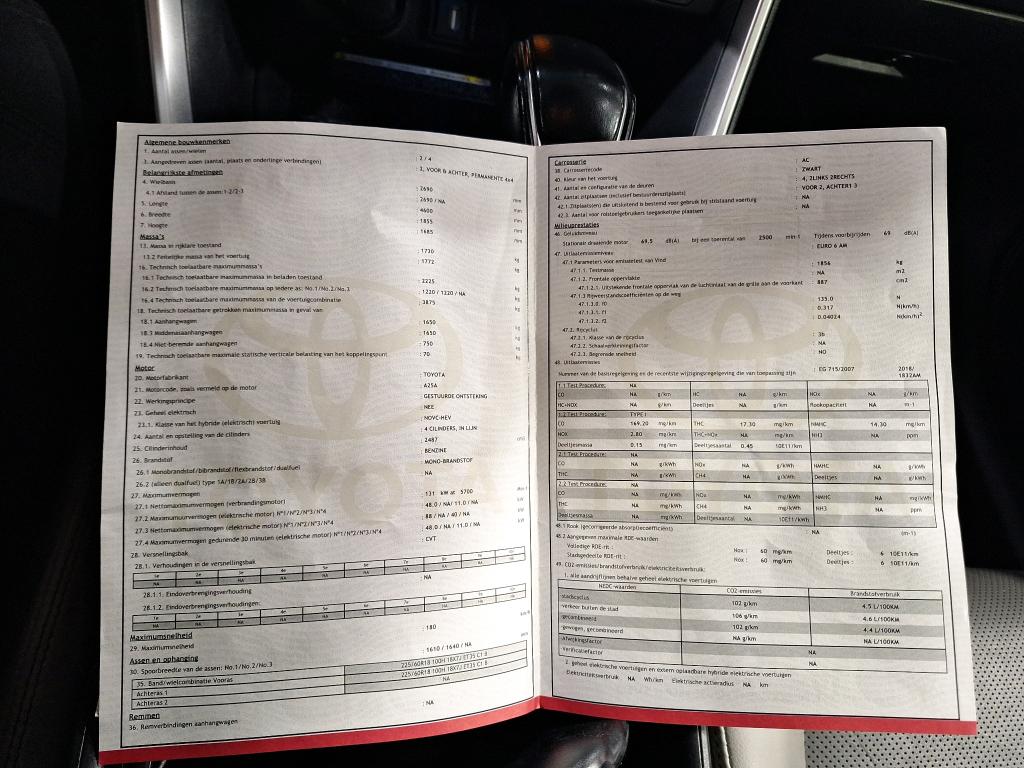 Algemene bouwkenmerken
1. Aantal assen/wielen : 2 / 4
3. Aangedreven assen (aantal, plaats en onderlinge verbindingen) : 2, VOOR & ACHTER, PERMANENTE 4x4
Belangrijkste afmetingen
4. Wielbasis : 2690
4.1 Afstand tussen de assen:1-2/2-3 : 2690 / NA mm
5. Lengte : 4600 mm
6. Breedte : 1855 mm
7. Hoogte : 1685 mm
Massa's
13. Massa in rijklare toestand : 1730 kg
13.2 Feitelijke massa van het voertuig : 1772 kg
16. Technisch toelaatbare maximummassa's
16.1 Technisch toelaatbare maximummassa in beladen toestand : 2225 kg
16.2 Technisch toelaatbare maximummassa op iedere as: No.1/No.2/No.3 : 1220 / 1220 / NA kg
16.4 Technisch toelaatbare maximummassa van de voertuigcombinatie : 3875 kg
18. Technisch toelaatbare getrokken maximummassa in geval van
18.1 Aanhangwagen : 1650 kg
18.3 Middenasaanhangwagen : 1650 kg
18.4 Niet-beremde aanhangwagen : 750 kg
19. Technisch toelaatbare maximale statische verticale belasting van het koppelingspunt : 70 kg
Motor
20. Motorfabrikant : TOYOTA
21. Motorcode, zoals vermeld op de motor : A25A
22. Werkingsprincipe : GESTUURDE ONTSTEKING
23. Geheel elektrisch : NEE
23.1. Klasse van het hybride (elektrisch) voertuig : NOVC-HEV
24. Aantal en opstelling van de cilinders : 4 CILINDERS, IN LIJN
25. Cilinderinhoud : 2487 cm3
26. Brandstof : BENZINE
26.1 Monobrandstof/bibrandstof/flexbrandstof/dualfuel : MONO-BRANDSTOF
26.2 (alleen dualfuel) type 1A/1B/2A/2B/3B : NA
27. Maximumvermogen
27.1 Nettomaximumvermogen (verbrandingsmotor) : 131 kW at 5700 Min-1
27.2 Maximumuurvermogen (elektrische motor) N°1/N°2/N°3/N°4 : 48.0 / NA / 11.0 / NA kW
27.3 Nettomaximumvermogen (elektrische motor) N°1/N°2/N°3/N°4 : 88 / NA / 40 / NA kW
27.4 Maximumvermogen gedurende 30 minuten (elektrische motor) N°1/N°2/N°3/N°4 : 48.0 / NA / 11.0 / NA kW
28. Versnellingsbak : CVT
28.1. Verhoudingen in de versnellingsbak
1e 2e 3e 4e 5e 6e 7e 8e 9e 10e
NA NA NA NA NA NA NA NA NA NA
28.1.1. Eindoverbrengingsverhouding : NA
28.1.2. Eindoverbrengingsverhoudingen:
1e 2e 3e 4e 5e 6e 7e 8e 9e 10e
NA NA NA NA NA NA NA NA NA NA
Maximumsnelheid
29. Maximumsnelheid : 180 km/h
Assen en ophanging
30. Spoorbreedte van de assen: No.1/No.2/No.3 : 1610 / 1640 / NA mm
35. Band/wielcombinatie Vooras 225/60R18 100H 18X7J ET35 C1 B
Achteras 1 225/60R18 100H 18X7J ET35 C1 B
Achteras 2 NA
Remmen
36. Remverbindingen aanhangwagen : NA
Carrosserie
38. Carrosseriecode : AC
40. Kleur van het voertuig : ZWART
41. Aantal en configuratie van de deuren : 4, 2LINKS 2RECHTS
42. Aantal zitplaatsen (inclusief bestuurderszitplaats) : VOOR 2, ACHTER1 3
42.1 Zitplaats(en) die uitsluitend is bestemd voor gebruik bij stilstaand voertuig : NA
42.3. Aantal voor rolstoelgebruikers toegankelijke plaatsen : NA
Milieuprestaties
46. Geluidsniveau
Stationair draaiende motor 69.5 dB(A) bij een toerental van 2500 min-1 Tijdens voorbijrijden 69 dB(A)
47. Uitlaatemissieniveau : EURO 6 AM
47.1 Parameters voor emissietest van Vind
47.1.1. Testmassa : 1856 kg
47.1.2. Frontale oppervlakte : NA m2
47.1.2.1. Uitstekende frontale oppervlak van de luchtinlaat van de grille aan de voorkant : 887 cm2
47.1.3 Rijweerstandscoëfficiënten op de weg
47.1.3.0. f0 : 135.0 N
47.1.3.1. f1 : 0.317 N(km/h)
47.1.3.2. f2 : 0.04024 N(km/h)²
47.2. Rijcyclus
47.2.1. Klasse van de rijcyclus : 3b
47.2.2. Schaalverkleiningsfactor : NA
47.2.3. Begrensde snelheid : NO
48. Uitlaatemissies
Nummer van de basisregelgeving en de recentste wijzigingsregelgeving die van toepassing zijn : EG 715/2007 2018/
1832AM
1.1 Test Procedure: NA
CO NA g/km HC NA g/km NOx NA g/km
HC+NOX NA g/km Deeltjes NA g/km Rookopaciteit NA m-1
1.2 Test Procedure: TYPE I
CO 169.20 mg/km THC 17.30 mg/km NMHC 14.30 mg/km
NOX 2.80 mg/km THC+NOx NA mg/km NH3 NA ppm
Deeltjesmassa 0.15 mg/km Deeltjesaantal 0.45 10E11/km
2.1 Test Procedure: NA
CO NA g/kWh NOx NA g/kWh NMHC NA g/kWh
THC NA g/kWh CH4 NA g/kWh Deeltjes NA g/kWh
2.2 Test Procedure: NA
CO NA mg/kWh NOx NA mg/kWh NMHC NA mg/kWh
THC NA mg/kWh CH4 NA mg/kWh NH3 NA ppm
Deeltjesmassa NA mg/kWh Deeltjesaantal NA 10E11/kWh
48.1 Rook (gecorrigeerde absorptiecoëfficient) : NA (m-1)
48.2 Aangegeven maximale RDE-waarden
Volledige RDE-rit : Nox : 60 mg/km Deeltjes : 6 10E11/km
Stadsgedeelte RDE-rit : Nox : 60 mg/km Deeltjes : 6 10E11/km
49. CO2-emissies/brandstofverbruik/elektriciteitsverbruik:
1. alle aandrijflijnen behalve geheel elektrische voertuigen
NEDC-waarden CO2-emissies Brandstofverbruik
stadscyclus 102 g/km 4.5 L/100KM
verkeer buiten de stad 106 g/km 4.6 L/100KM
gecombineerd 102 g/km 4.4 L/100KM
gewogen, gecombineerd NA g/km NA L/100KM
Afwijkingsfactor NA
Verificatiefactor NA
2. geheel elektrische voertuigen en extern oplaadbare hybride elektrische voertuigen
Elektriciteitsverbruik NA Wh/km Elektrische actieradius NA km